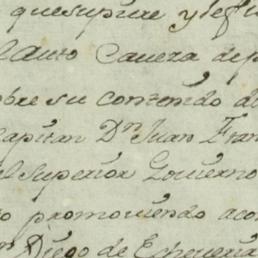 que supure y defi
l Auto Caveza de p
obre su contenido de
Capitan Dn Juan Fran
el Superior Govierno
to promoviendo aco
n Diego de Echeverria